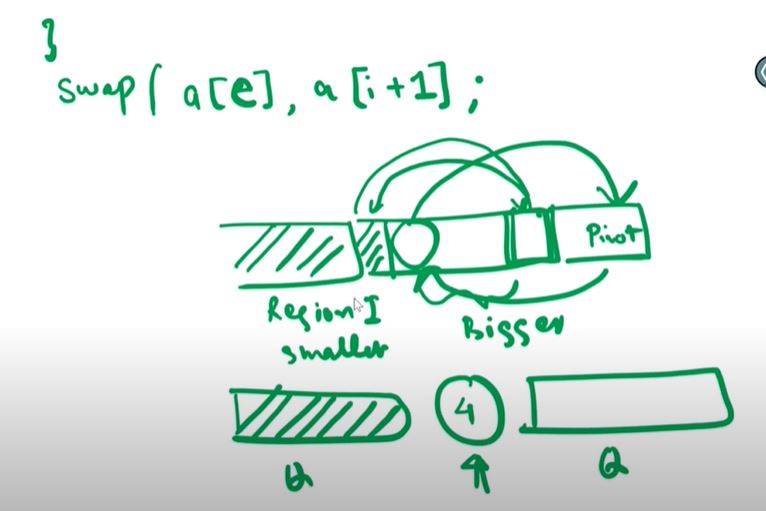 }
swap( a[e], a[i+1];
Pivot
Region I
smaller
Bigger
4
Q
Q